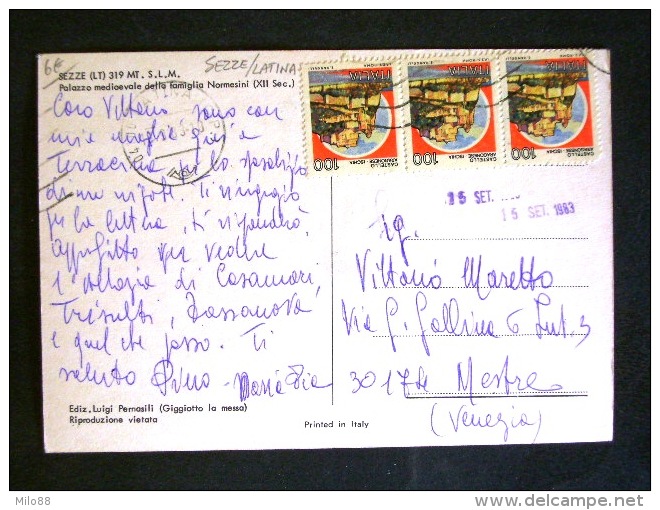 6€
SEZZE/LATINA
SEZZE (LT) 319 MT. S.L.M.
Palazzo medioevale della famiglia Normesini (XII Sec.)
Caro Vittorio, sono con
mia moglie giù a
Terracina per lo sposalizio
di un nipote. Ti ringrazio
per la lettera, ti risponderò,
approfitto per vedere
l'abbazia di Casamari,
Trisulti, Fossanova
e quel che posso. Ti
saluto Maria Pia
Ediz. Luigi Pernasili (Giggiotto la messa)
Riproduzione vietata
Printed in Italy
ITALIA
100
CASTELLO
ARAGONESE ISCHIA
ITALIA
100
CASTELLO
ARAGONESE ISCHIA
ITALIA
100
CASTELLO
ARAGONESE ISCHIA
15 SET.
15 SET. 1983
Sig.
Vittorio Maretto
Via G. Gallina 6 Int. 3
30174 Mestre
(Venezia)
Milo88
delcampe.net